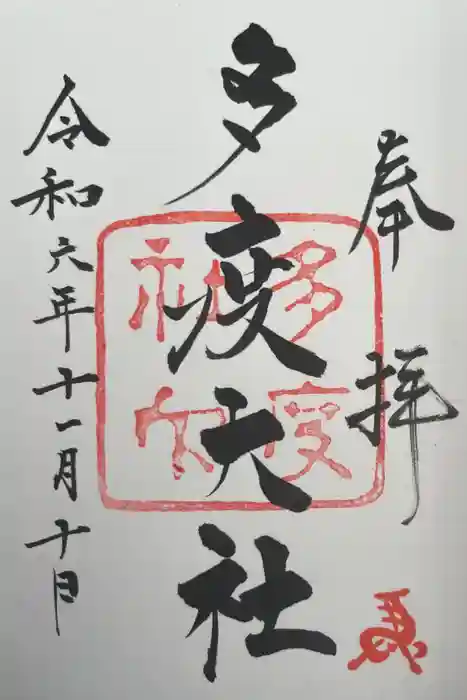 奉拝
多度大社
多度
大社
令和六年十一月十日
馬